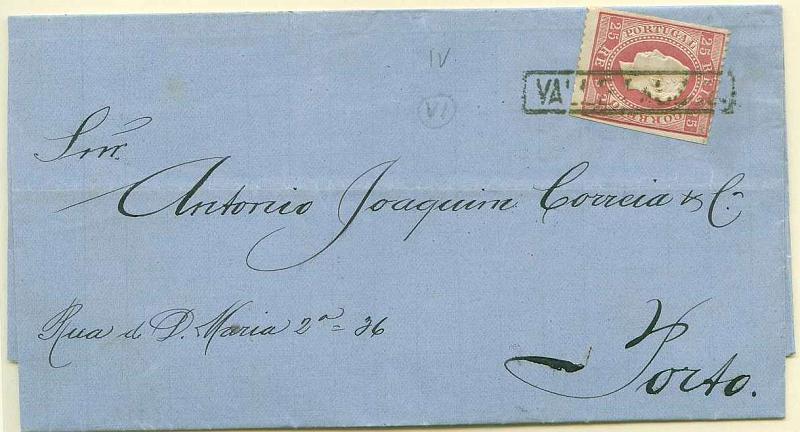 IV
VI
PORTUGAL
25 REIS
25
CORREIO
25
Snr.
Antonio Joaquim Correia & Cª
Rua de D. Maria 2ª = 36
Porto.